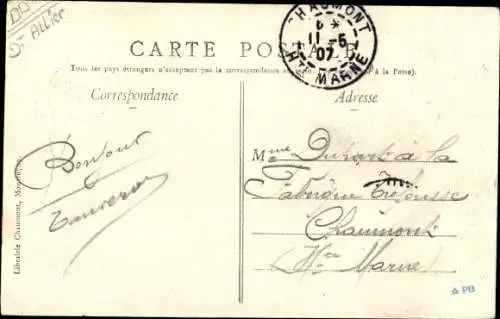 Dt Allier
CHAUMONT
11-5
07
Hte MARNE
CARTE POSTALE
Tous les pays étrangers n'acceptent pas la correspondance au
à la Poste).
Correspondance
Adresse
Bonjour
Mme Durget à la
Fabrique Trefousse
Chaumont
(Hte Marne)
Librairie Chaumont,
PB